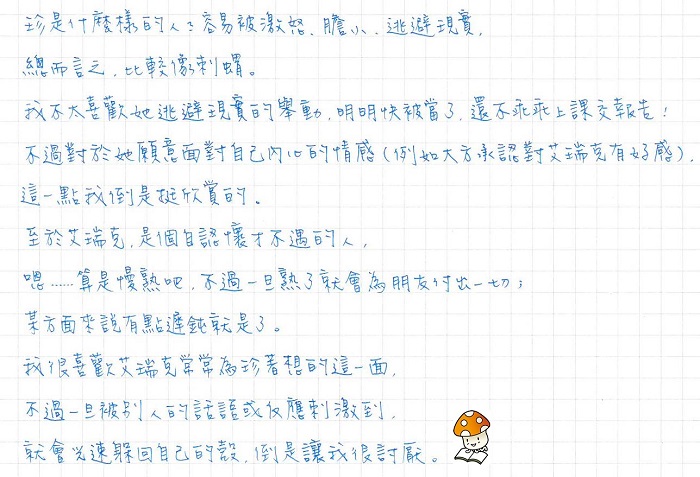 珍是什麼樣的人：容易被激怒、膽小、逃避現實，
總而言之，比較像刺蝟。
我不太喜歡她逃避現實的舉動，明明快被當了，還不乖乖上課交報告！
不過對於她願意面對自己內心的情感（例如大方承認對艾瑞克有好感），
這一點我倒是挺欣賞的。
至於艾瑞克，是個自認懷才不遇的人，
嗯……算是慢熟吧，不過一旦熟了就會為朋友付出一切；
某方面來說有點遲鈍就是了。
我很喜歡艾瑞克常常為珍著想的這一面，
不過一旦被別人的話語或反應刺激到，
就會光速躲回自己的殼，倒是讓我很討厭。